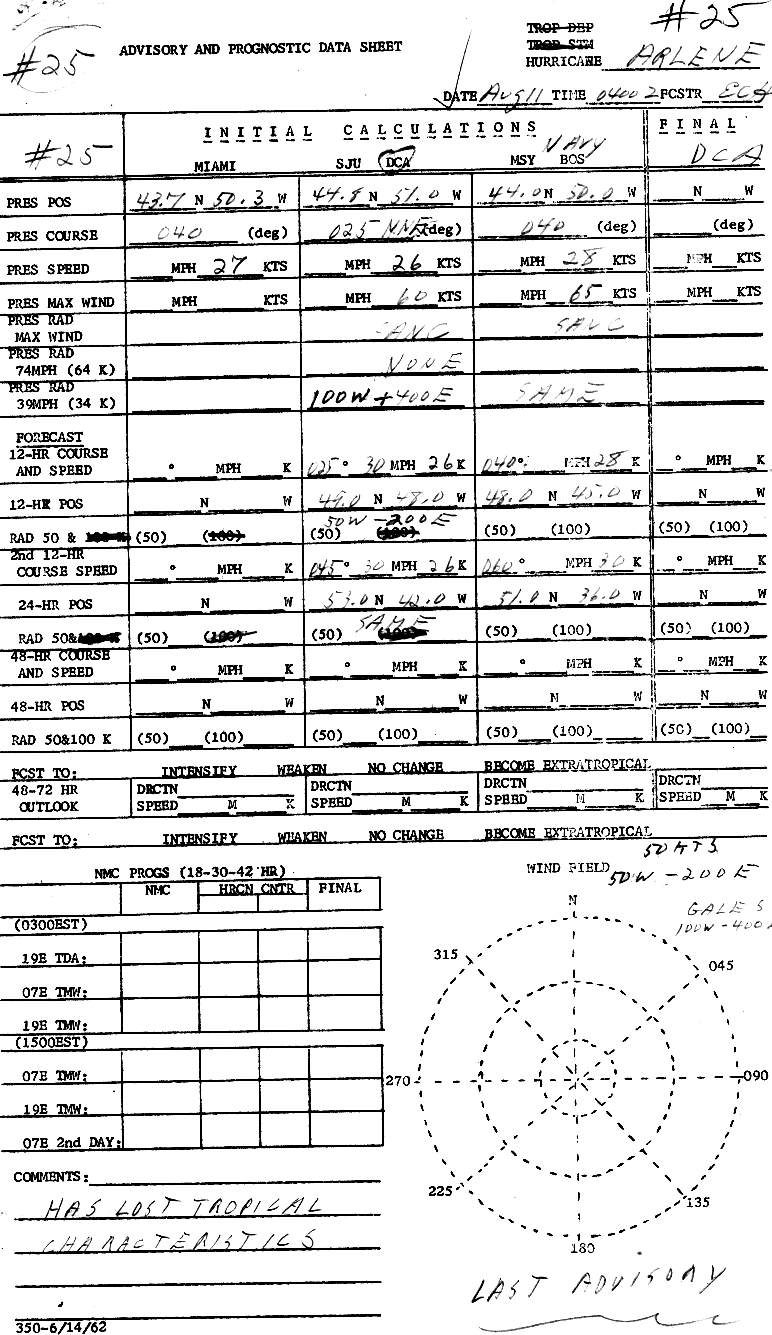 #25
#25
ADVISORY AND PROGNOSTIC DATA SHEET
TROP DEP
TROP STM
HURRICANE ARLENE
DATE Aug 11 TIME 0400Z FCSTR ECH
#25
INITIAL CALCULATIONS
FINAL
MIAMI SJU DCA MSY NAVY BOS DCA
PRES POS 43.7 N 50.3 W 44.8 N 51.0 W 44.0 N 50.0 W N W
PRES COURSE 040 (deg) 025 NNE (deg) 040 (deg) (deg)
PRES SPEED MPH 27 KTS MPH 26 KTS MPH 28 KTS MPH KTS
PRES MAX WIND MPH KTS MPH 60 KTS MPH 65 KTS MPH KTS
PRES RAD
MAX WIND
PRES RAD
74MPH (64 K) NONE
PRES RAD
39MPH (34 K) 100W + 400E SAME
FORECAST
12-HR COURSE
AND SPEED ° MPH K 025° 30 MPH 26 K 040° MPH 28 K ° MPH K
12-HR POS N W 49.0 N 48.0 W 48.0 N 45.0 W N W
50W - 200E
RAD 50 & 100 K (50) (100) (50) (100) (50) (100) (50) (100)
2nd 12-HR
COURSE SPEED ° MPH K 045° 30 MPH 26 K 060° MPH 30 K ° MPH K
24-HR POS N W 53.0 N 42.0 W 51.0 N 36.0 W N W
SAME
RAD 50&100 K (50) (100) (50) (100) (50) (100) (50) (100)
48-HR COURSE
AND SPEED ° MPH K ° MPH K ° MPH K ° MPH K
48-HR POS N W N W N W N W
RAD 50&100 K (50) (100) (50) (100) (50) (100) (50) (100)
FCST TO: INTENSIFY WEAKEN NO CHANGE BECOME EXTRATROPICAL
48-72 HR DRCTN DRCTN DRCTN DRCTN
OUTLOOK SPEED M K SPEED M K SPEED M K SPEED M K
FCST TO: INTENSIFY WEAKEN NO CHANGE BECOME EXTRATROPICAL
50 KTS
NMC PROGS (18-30-42 HR)
WIND FIELD 50W - 200E
NMC HRCN CNTR FINAL
GALES
100W - 400
(0300EST)
19E TDA:
07E TMW:
19E TMW:
(1500EST)
07E TMW:
19E TMW:
07E 2nd DAY:
N
045
090
135
180
225
270
315
COMMENTS:
HAS LOST TROPICAL
CHARACTERISTICS
LAST ADVISORY
350-6/14/62